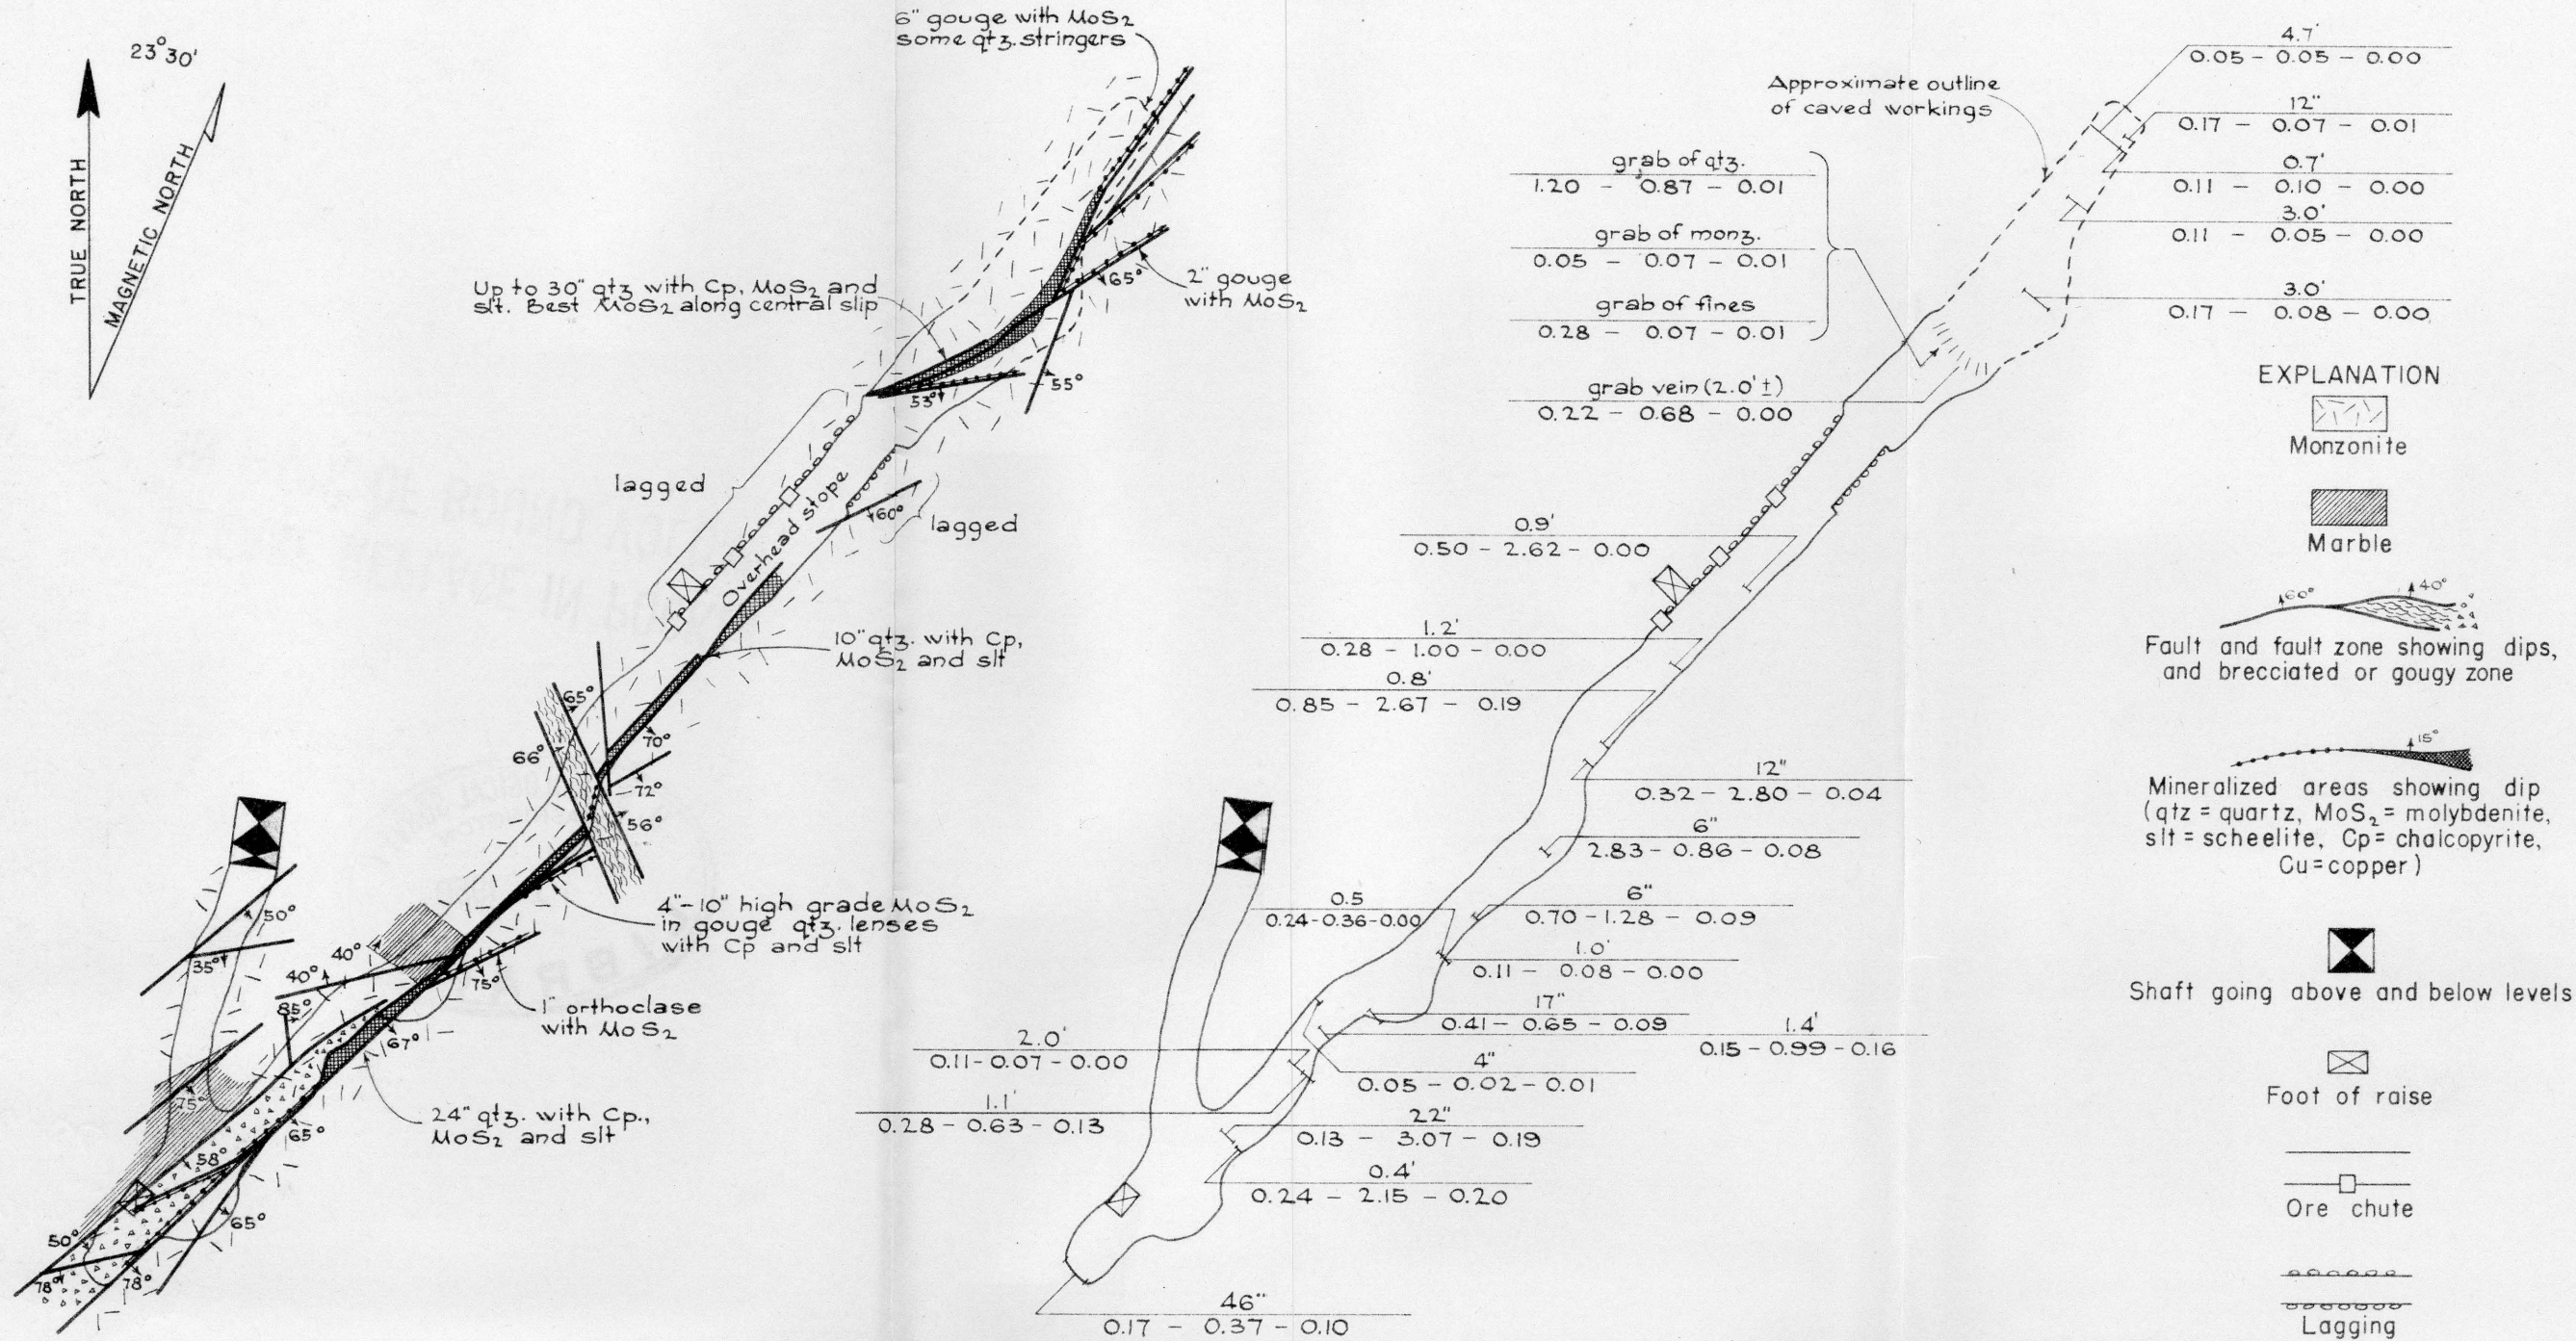 23°30'
TRUE NORTH
MAGNETIC NORTH
6" gouge with MoS2
some qtz. stringers
2" gouge
with MoS2
65°
Up to 30" qtz with Cp, MoS2 and
slt. Best MoS2 along central slip
53°
55°
lagged
Overhead stope
60°
lagged
10" qtz. with Cp,
MoS2 and slt
65°
66°
70°
72°
56°
4"-10" high grade MoS2
in gouge qtz. lenses
with Cp and slt
50°
35°
40°
40°
85°
75°
1" orthoclase
with MoS2
67°
75°
24" qtz. with Cp.,
MoS2 and slt
65°
58°
65°
50°
78°
78°
Approximate outline
of caved workings
4.7'
0.05 - 0.05 - 0.00
12"
0.17 - 0.07 - 0.01
0.7'
0.11 - 0.10 - 0.00
3.0'
0.11 - 0.05 - 0.00
3.0'
0.17 - 0.08 - 0.00
grab of qtz.
1.20 - 0.87 - 0.01
grab of monz.
0.05 - 0.07 - 0.01
grab of fines
0.28 - 0.07 - 0.01
grab vein (2.0' ±)
0.22 - 0.68 - 0.00
0.9'
0.50 - 2.62 - 0.00
1.2'
0.28 - 1.00 - 0.00
0.8'
0.85 - 2.67 - 0.19
12"
0.32 - 2.80 - 0.04
6"
2.83 - 0.86 - 0.08
0.5
0.24 - 0.36 - 0.00
6"
0.70 - 1.28 - 0.09
1.0'
0.11 - 0.08 - 0.00
17"
0.41 - 0.65 - 0.09
1.4'
0.15 - 0.99 - 0.16
2.0'
0.11 - 0.07 - 0.00
4"
0.05 - 0.02 - 0.01
1.1'
0.28 - 0.63 - 0.13
22"
0.13 - 3.07 - 0.19
0.4'
0.24 - 2.15 - 0.20
46"
0.17 - 0.37 - 0.10
EXPLANATION
Monzonite
Marble
60°
40°
Fault and fault zone showing dips,
and brecciated or gougy zone
15°
Mineralized areas showing dip
(qtz = quartz, MoS2 = molybdenite,
slt = scheelite, Cp = chalcopyrite,
Cu = copper)
Shaft going above and below levels
Foot of raise
Ore chute
Lagging